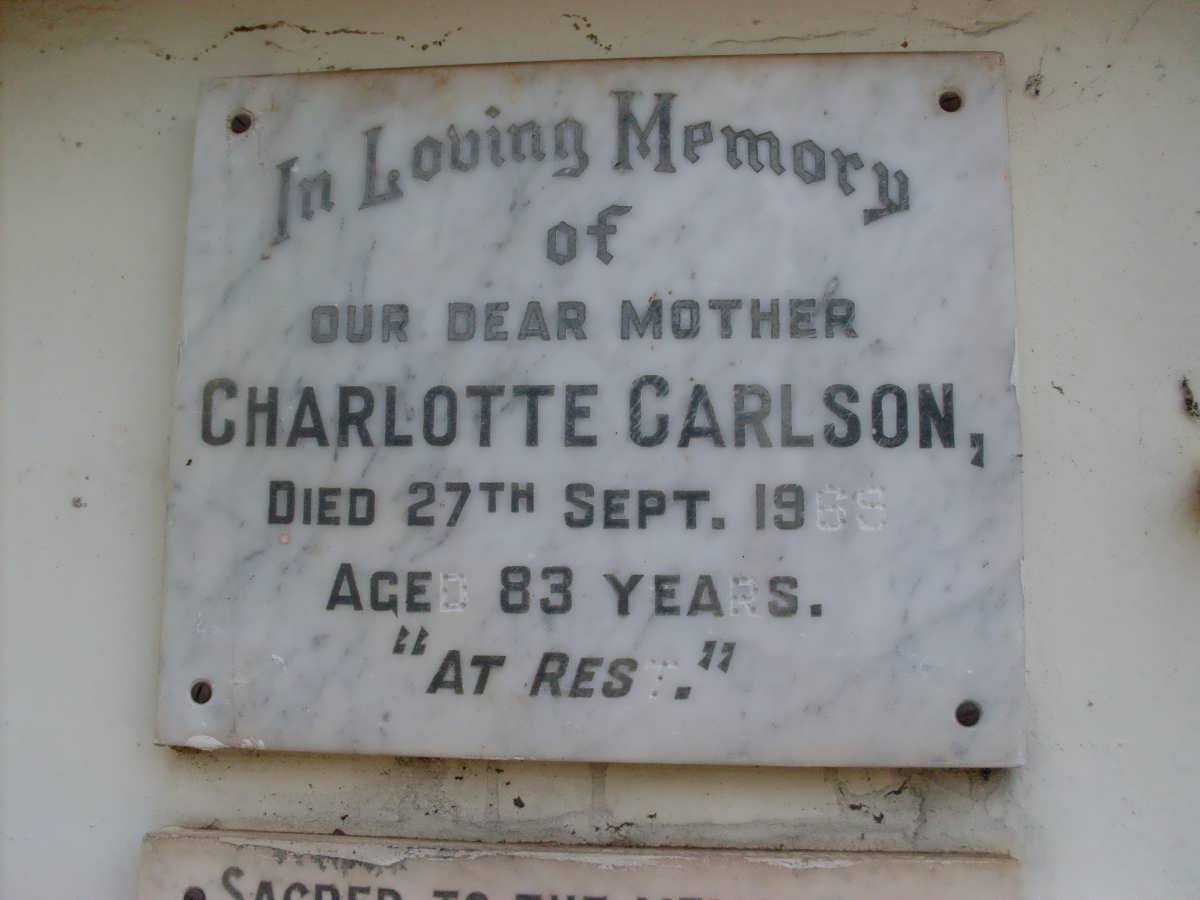 In Loving Memory
of
OUR DEAR MOTHER
CHARLOTTE CARLSON,
DIED 27TH SEPT. 1968
AGED 83 YEARS.
"AT REST."
SACRED TO THE